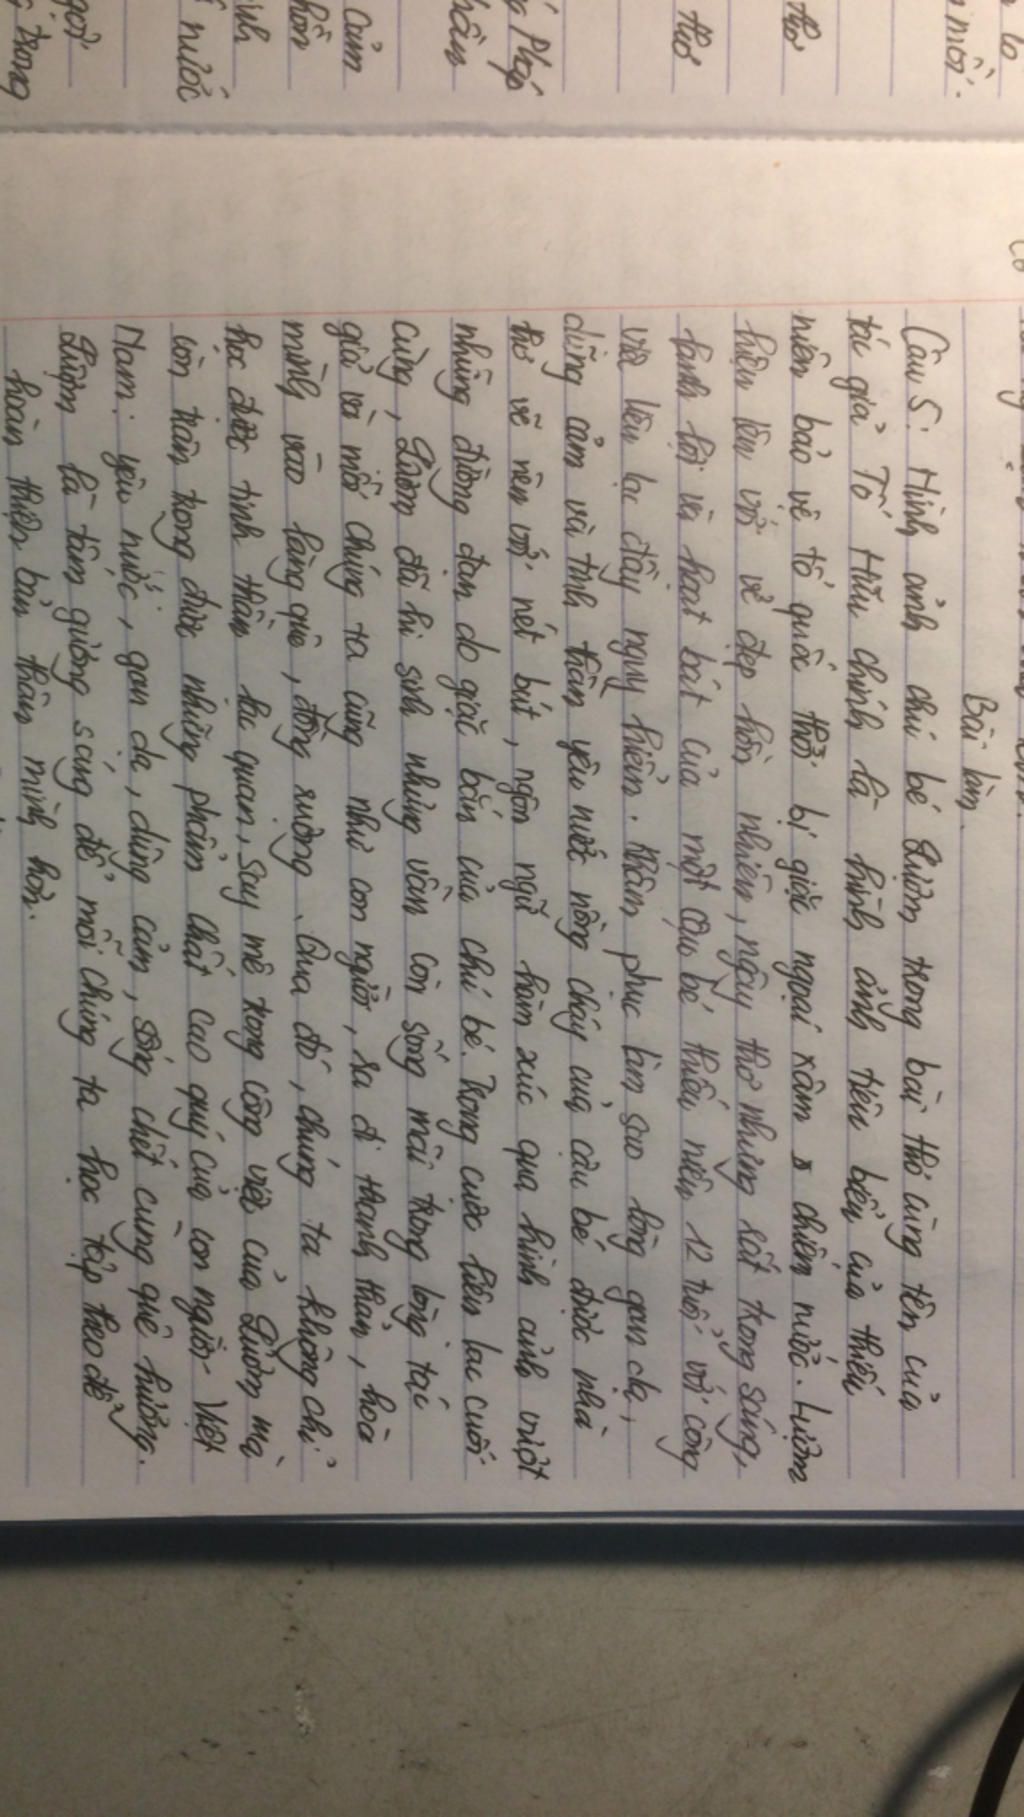 Bài làm.
Câu 5: Hình ảnh chú bé Lượm trong bài thơ cùng tên của
tác giả Tố Hữu chính là hình ảnh tiêu biểu của thiếu
niên bảo vệ tổ quốc thời bị giặc ngoại xâm chiếm nước. Lượm
hiện lên với vẻ đẹp hồn nhiên, ngây thơ nhưng rất trong sáng,
lanh lợi và hoạt bát của một cậu bé thiếu niên 12 tuổi với công
việc liên lạc đầy nguy hiểm. Khâm phục làm sao lòng gan dạ,
dũng cảm và tinh thần yêu nước nồng cháy của cậu bé được nhà
thơ vẽ nên với nét bút, ngôn ngữ hàm xúc qua hình ảnh vượt
những đường đạn do giặc bắn của chú bé. Trong cuộc liên lạc cuối
cùng, Lượm đã hi sinh nhưng vẫn còn sống mãi trong lòng tác
giả và mỗi chúng ta cũng như con người, ra đi thanh thản, hòa
mình vào làng quê, đồng ruộng. Qua đó, chúng ta không chỉ
học được tinh thần lạc quan, say mê trong công việc của Lượm mà
còn trân trọng được những phẩm chất cao quý của con người Việt
Nam: yêu nước, gan dạ, dũng cảm, sống chết cùng quê hương.
Lượm là tấm gương sáng để mỗi chúng ta học tập theo để
hoàn thiện bản thân mình hơn.
thơ
thơ
Pháp
Cảm
nước
trong